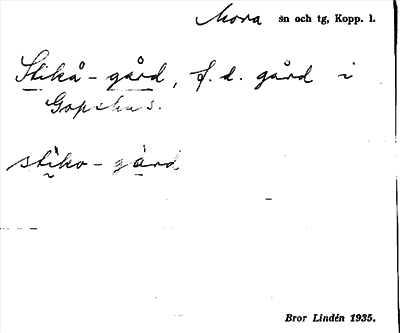 Mora sn och tg, Kopp. l.
Stikå-gård, f.d. gård i
Gopshus.
stiko-gård
Bror Lindén 1935.